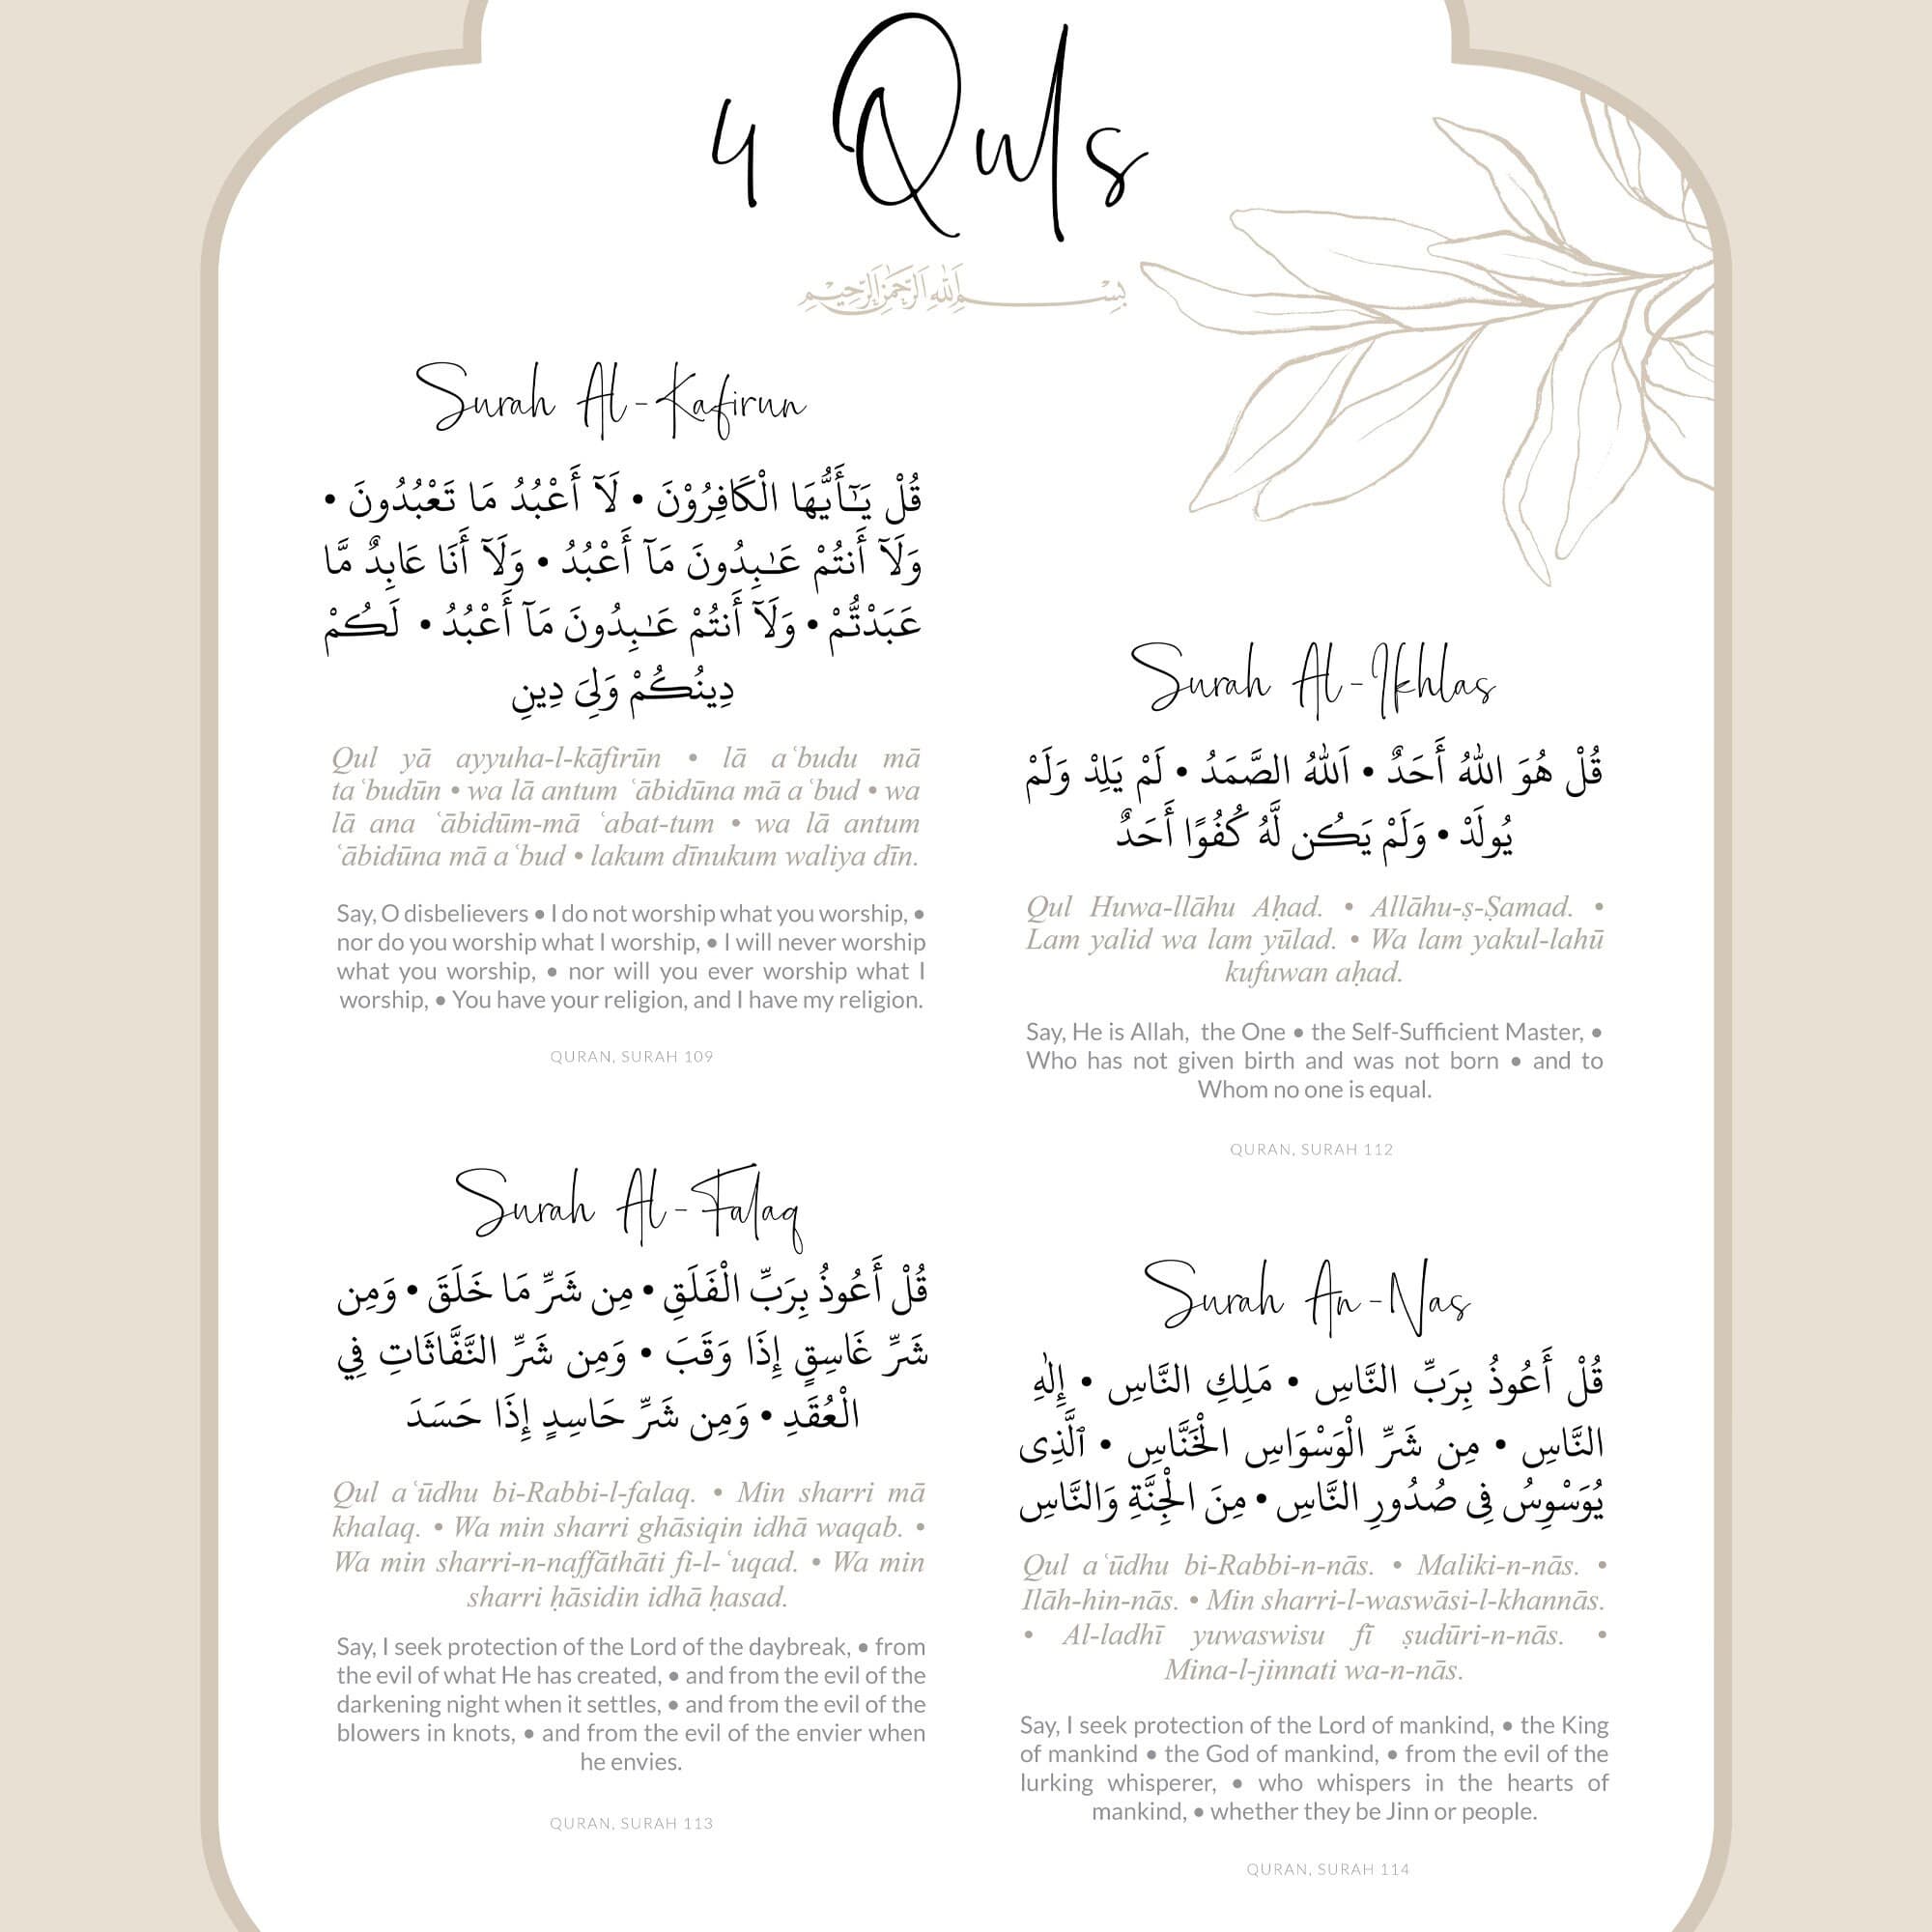 4 Quls
بِسْمِ اللهِ الرَّحْمٰنِ الرَّحِيْمِ
Surah Al-Kafirun
قُلْ يَـٰٓأَيُّهَا الْكَافِرُوْنَ • لَآ أَعْبُدُ مَا تَعْبُدُونَ •
وَلَآ أَنتُمْ عَـٰبِدُونَ مَآ أَعْبُدُ • وَلَآ أَنَا عَابِدٌ مَّا
عَبَدْتُّمْ • وَلَآ أَنتُمْ عَـٰبِدُونَ مَآ أَعْبُدُ • لَكُمْ
دِينُكُمْ وَلِىَ دِينِ
Qul yā ayyuha-l-kāfirūn • lā aʿbudu mā
taʿbudūn • wa lā antum ʿābidūna mā aʿbud • wa
lā ana ʿābidūm-mā ʿabat-tum • wa lā antum
ʿābidūna mā aʿbud • lakum dīnukum waliya dīn.
Say, O disbelievers • I do not worship what you worship, •
nor do you worship what I worship, • I will never worship
what you worship, • nor will you ever worship what I
worship, • You have your religion, and I have my religion.
QURAN, SURAH 109
Surah Al-Ikhlas
قُلْ هُوَ اللهُ أَحَدٌ • اَللهُ الصَّمَدُ • لَمْ يَلِدْ وَلَمْ
يُولَدْ • وَلَمْ يَكُن لَّهُ كُفُوًا أَحَدٌ
Qul Huwa-llāhu Aḥad. • Allāhu-ṣ-Ṣamad. •
Lam yalid wa lam yūlad. • Wa lam yakul-lahū
kufuwan aḥad.
Say, He is Allah, the One • the Self-Sufficient Master, •
Who has not given birth and was not born • and to
Whom no one is equal.
QURAN, SURAH 112
Surah Al-Falaq
قُلْ أَعُوذُ بِرَبِّ الْفَلَقِ • مِن شَرِّ مَا خَلَقَ • وَمِن
شَرِّ غَاسِقٍ إِذَا وَقَبَ • وَمِن شَرِّ النَّفَّاثَاتِ فِي
الْعُقَدِ • وَمِن شَرِّ حَاسِدٍ إِذَا حَسَدَ
Qul aʿūdhu bi-Rabbi-l-falaq. • Min sharri mā
khalaq. • Wa min sharri ghāsiqin idhā waqab. •
Wa min sharri-n-naffāthāti fi-l-ʿuqad. • Wa min
sharri ḥāsidin idhā ḥasad.
Say, I seek protection of the Lord of the daybreak, • from
the evil of what He has created, • and from the evil of the
darkening night when it settles, • and from the evil of the
blowers in knots, • and from the evil of the envier when
he envies.
QURAN, SURAH 113
Surah An-Nas
قُلْ أَعُوذُ بِرَبِّ النَّاسِ • مَلِكِ النَّاسِ • إِلٰهِ
النَّاسِ • مِن شَرِّ الْوَسْوَاسِ الْخَنَّاسِ • ٱلَّذِى
يُوَسْوِسُ فِى صُدُورِ النَّاسِ • مِنَ الْجِنَّةِ وَالنَّاسِ
Qul aʿūdhu bi-Rabbi-n-nās. • Maliki-n-nās. •
Ilāh-hin-nās. • Min sharri-l-waswāsi-l-khannās.
• Al-ladhī yuwaswisu fī ṣudūri-n-nās. •
Mina-l-jinnati wa-n-nās.
Say, I seek protection of the Lord of mankind, • the King
of mankind • the God of mankind, • from the evil of the
lurking whisperer, • who whispers in the hearts of
mankind, • whether they be Jinn or people.
QURAN, SURAH 114